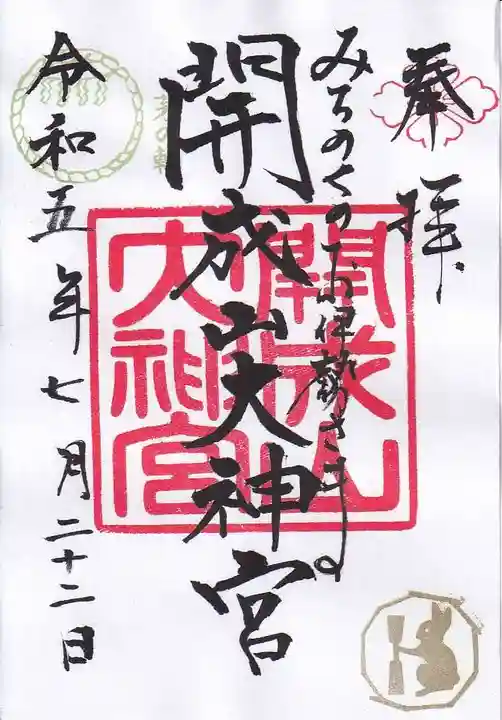 奉拝
みちのくのお伊勢さま
開成山大神宮
開成山大神宮
令和五年七月二十二日